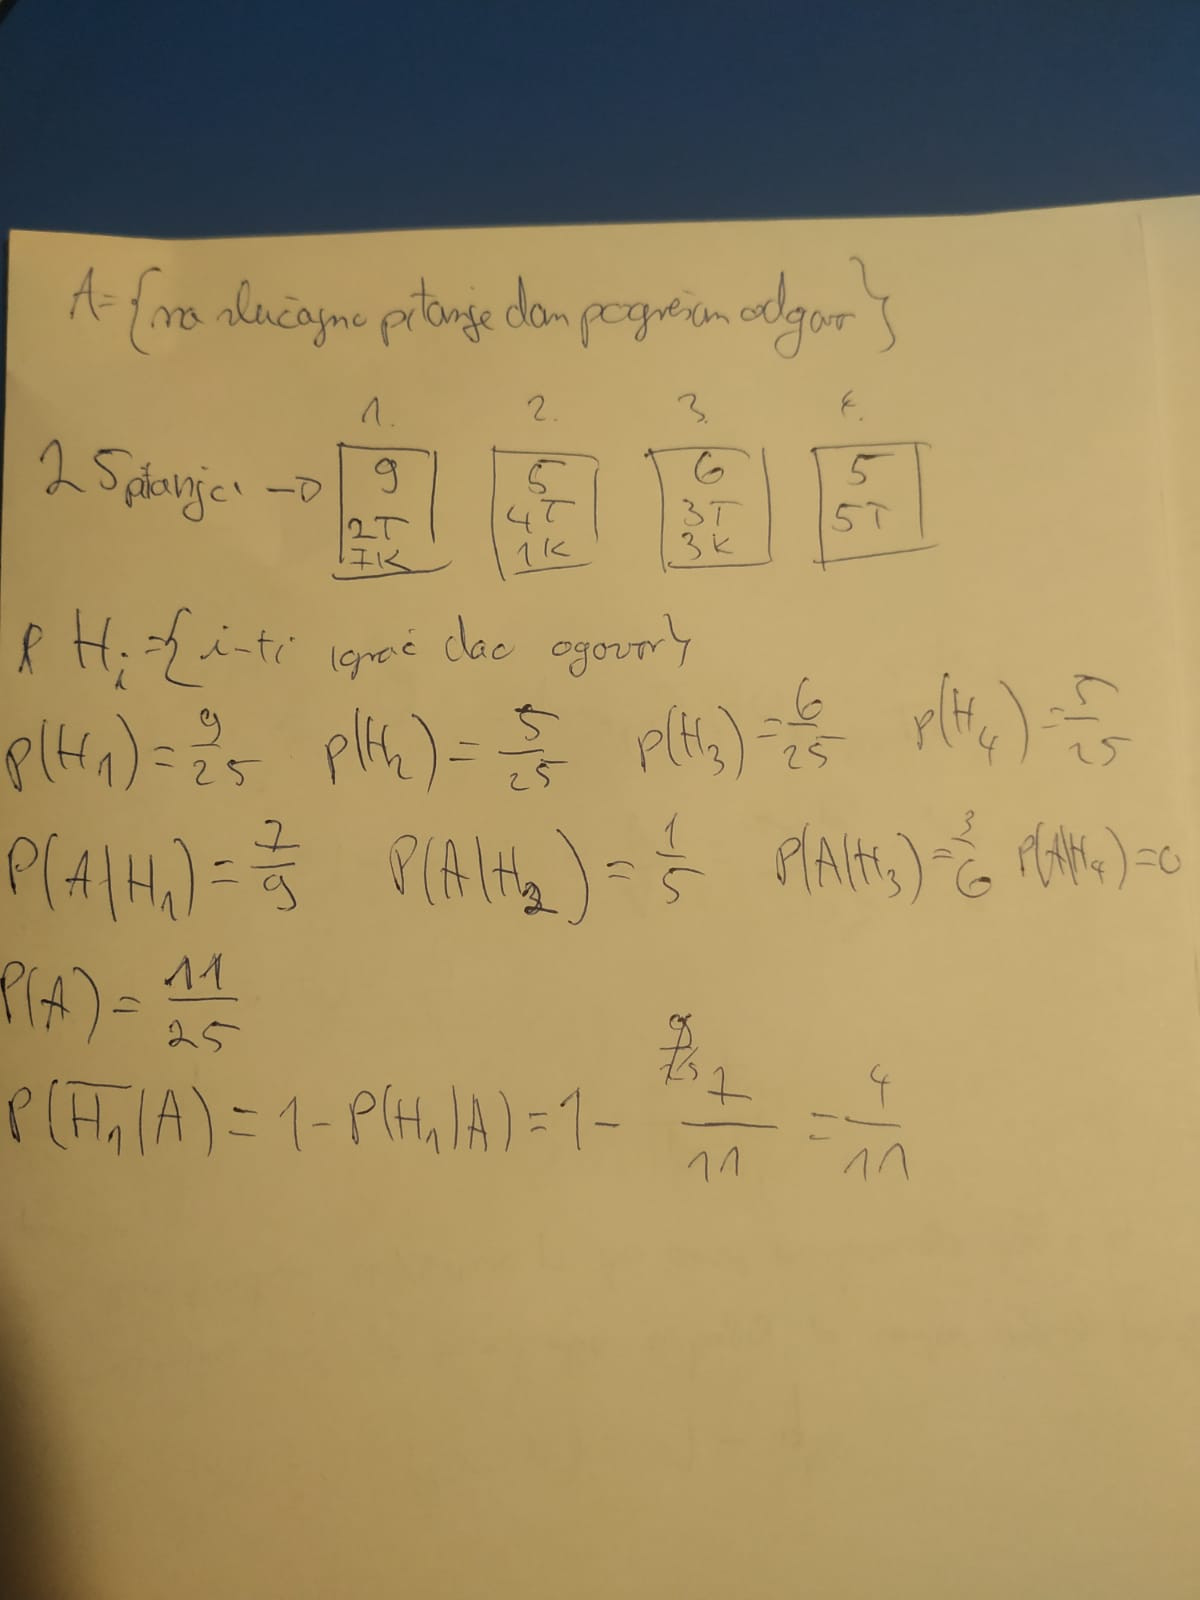 A = {na slučajno pitanje dan pogrešan odgovor}
1. 2. 3. 4.
25 pitanja → 9 5 6 5
2T 4T 3T 5T
7K 1K 3K
P Hi = {i-ti igrač dao ogovor}
P(H1) = 9/25 P(H2) = 5/25 P(H3) = 6/25 P(H4) = 5/25
P(A|H1) = 7/9 P(A|H2) = 1/5 P(A|H3) = 3/6 P(A|H4) = 0
P(A) = 11/25
P(H̅1|A) = 1 - P(H1|A) = 1 - 7/11 = 4/11